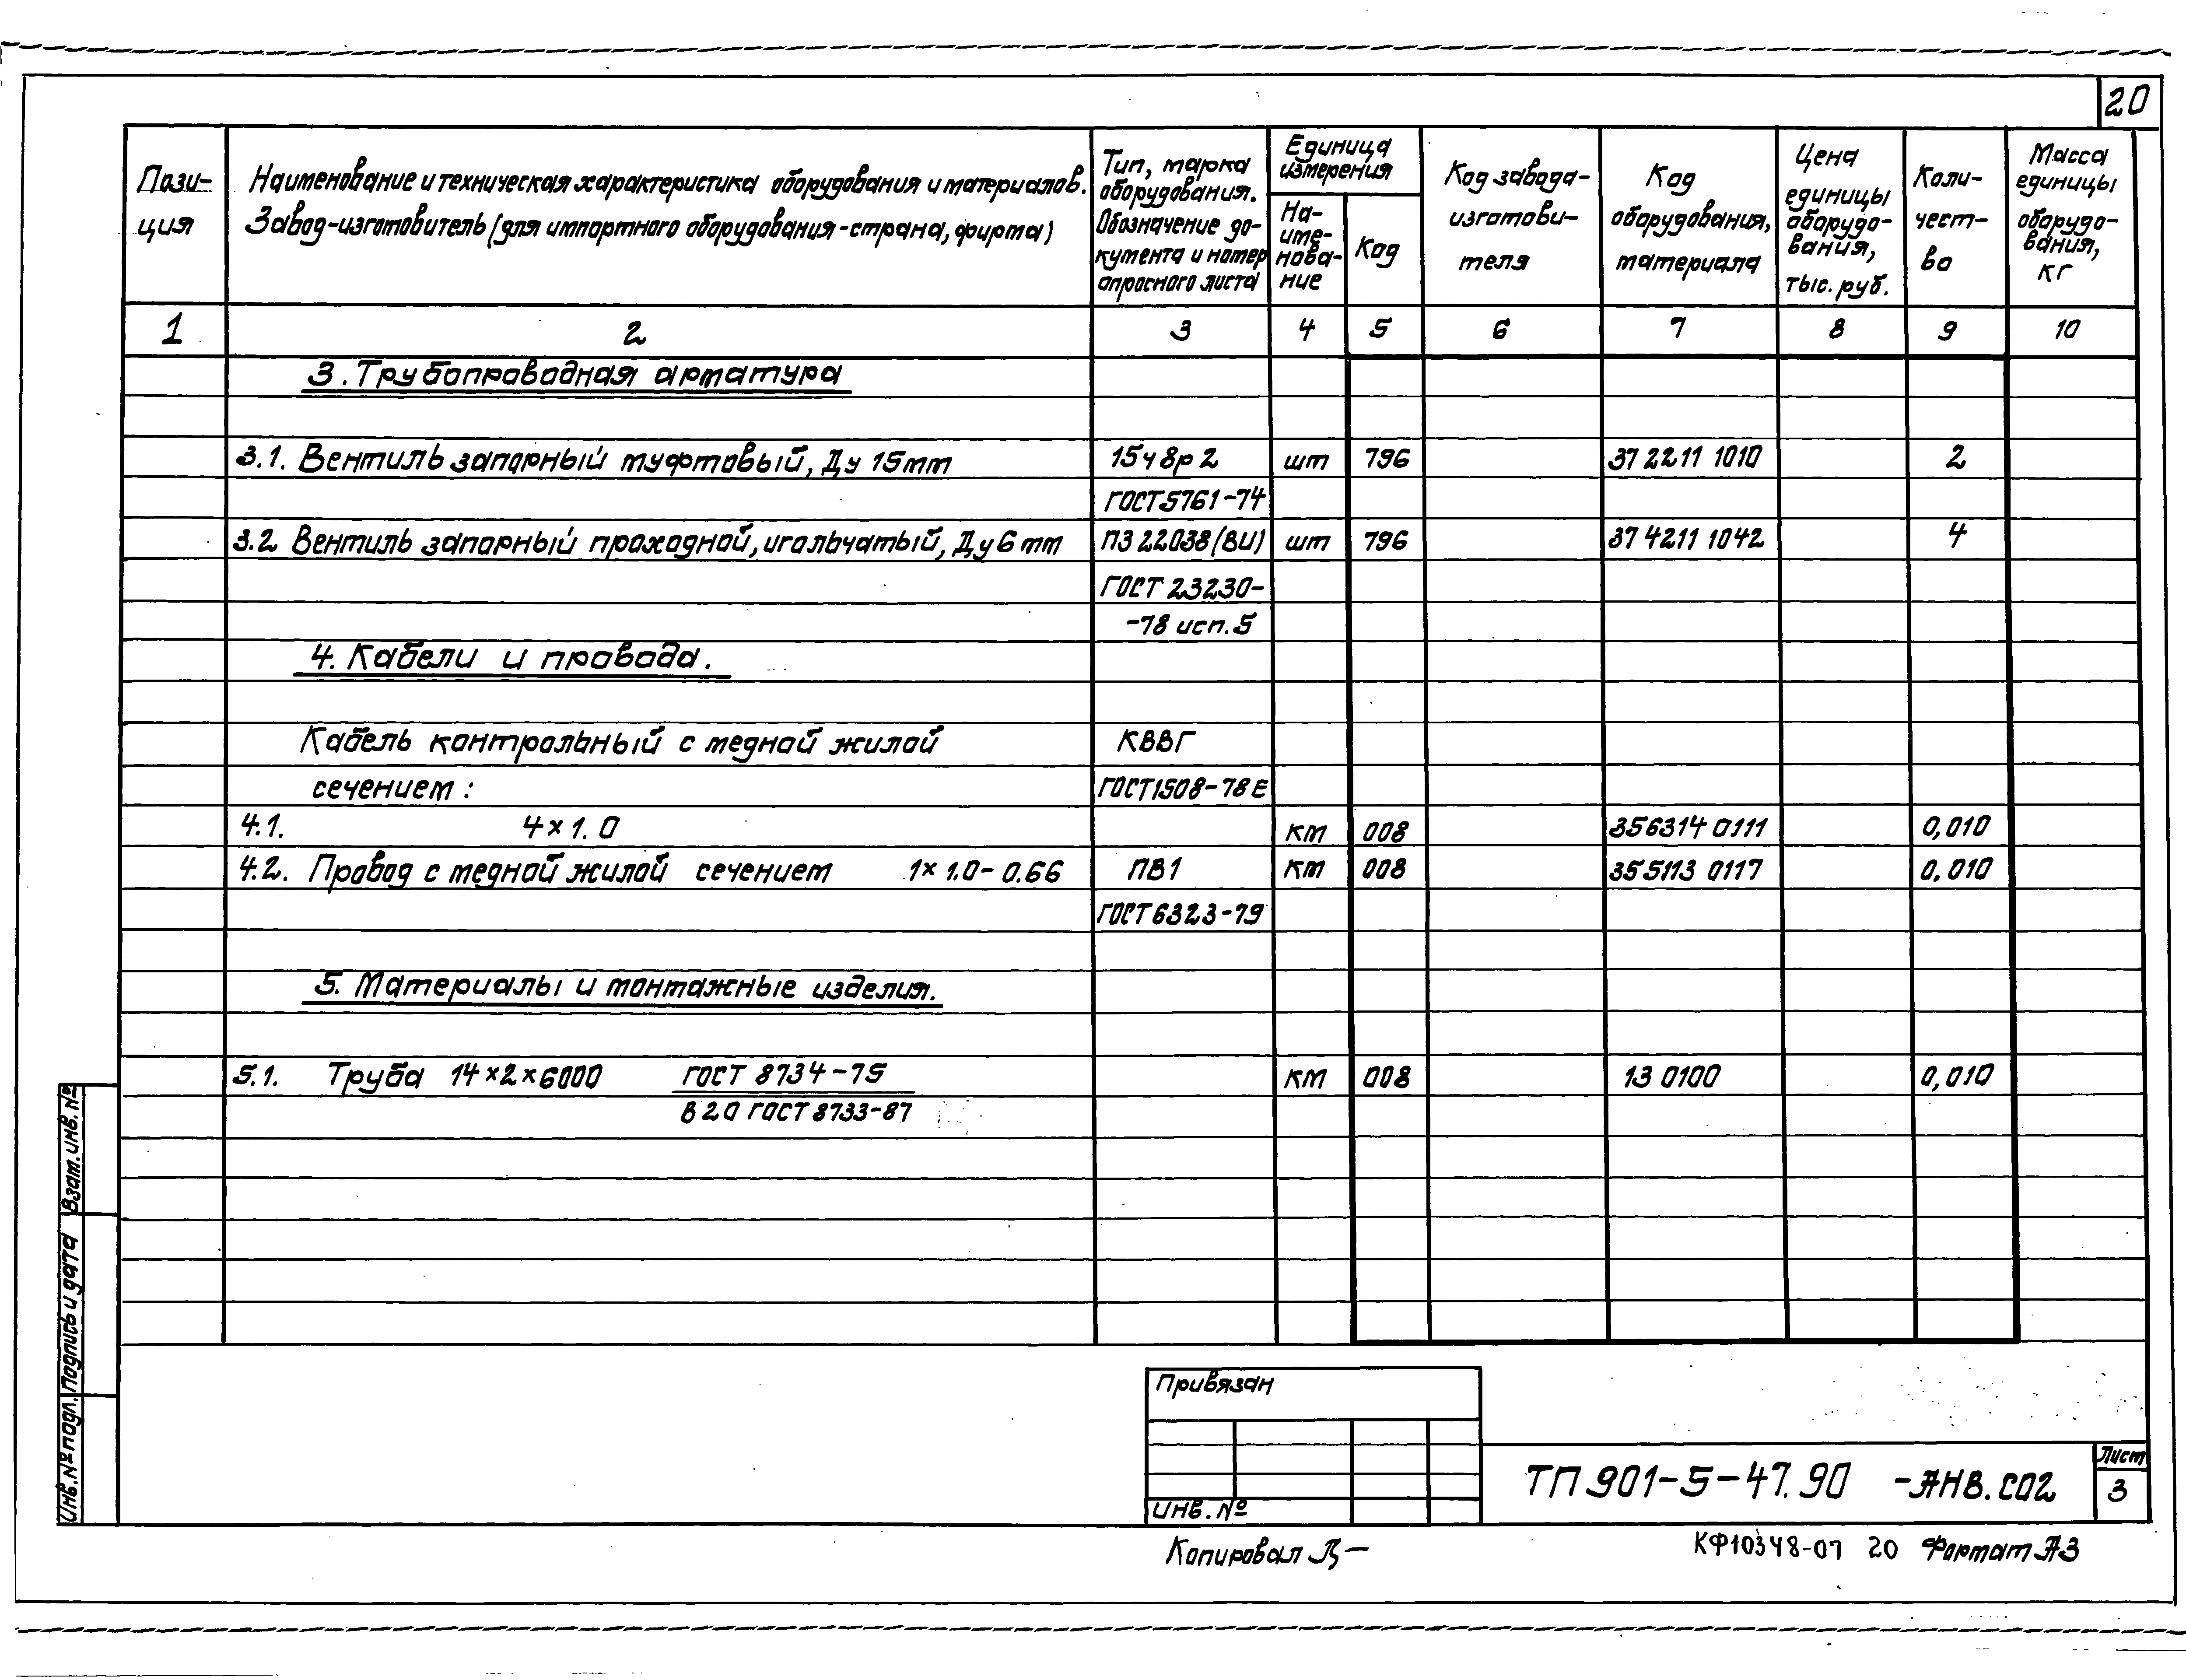 20
Пози-
ция
Наименование и техническая характеристика оборудования и материалов.
Завод-изготовитель (для импортного оборудования-страна, фирма)
Тип, марка
оборудования.
Обозначение до-
кумента и номер
опросного листа
Единица
измерения
На-
име-
нова-
ние
Код
Код завода-
изготови-
теля
Код
оборудования,
материала
Цена
единицы
оборудо-
вания,
тыс. руб.
Коли-
чест-
во
Масса
единицы
оборудо-
вания,
кг
1 2 3 4 5 6 7 8 9 10
3. Трубопроводная арматура
3.1. Вентиль запорный муфтовый, Ду 15мм 15ч 8р 2 шт 796 37 2211 1010 2
ГОСТ 5761-74
3.2 Вентиль запорный проходной, игольчатый, Ду 6 мм ПЗ 22038 (ВИ) шт 796 37 4211 1042 4
ГОСТ 23230-
-78 исп. 5
4. Кабели и провода.
Кабель контрольный с медной жилой КВВГ
сечением: ГОСТ 1508-78 Е
4.1. 4×1.0 км 008 356314 0111 0,010
4.2. Провод с медной жилой сечением 1×1.0-0.66 ПВ1 км 008 355113 0117 0.010
ГОСТ 6323-79
5. Материалы и монтажные изделия.
5.1. Труба 14×2×6000 ГОСТ 8734-75 км 008 13 0100 0,010
В 20 ГОСТ 8733-87
Взам. инв. №
Подпись и дата
Инв. № подл.
Привязан
Инв. №
ТП 901-5-47.90 -АНВ.СО2
Лист
3
Копировал
КФ10348-07 20 Формат А3